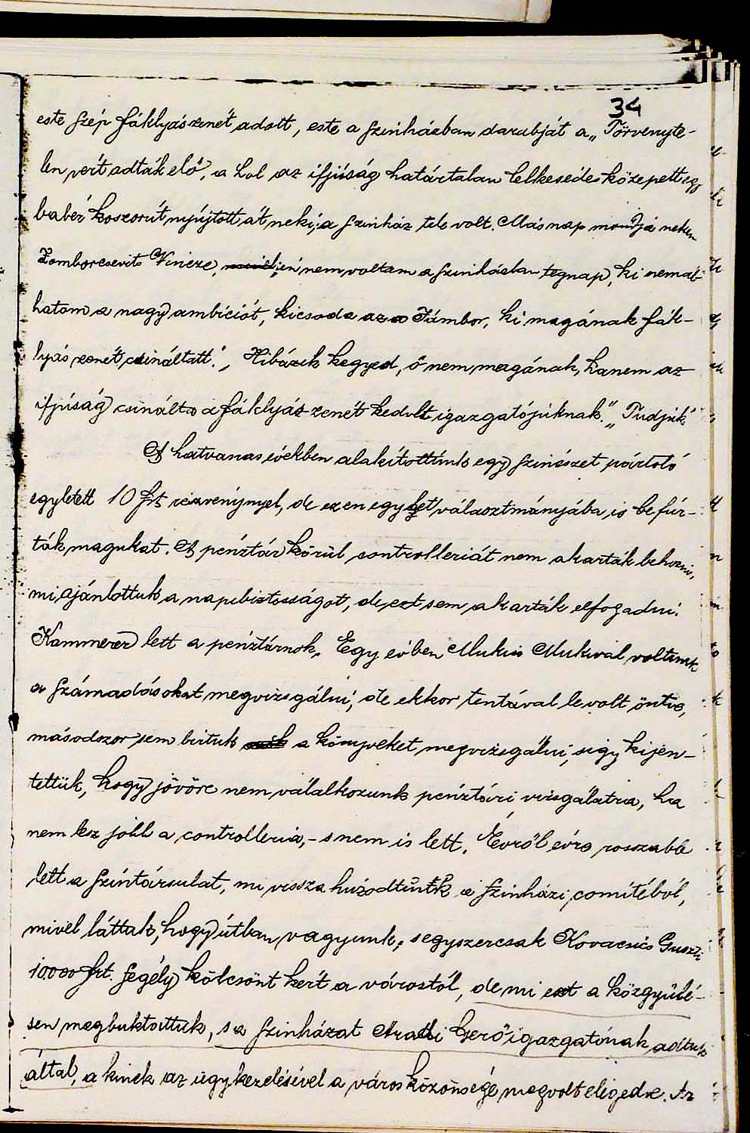 34
este szép fáklyászenét adott, este a szinházban darabját a „Törvényte-
len vért adták elő, a hol az ifjúság határtalan lelkesedés közepett egy
babér koszorút nyújtott át neki, a szinház tele volt. Másnap mondja nekem
Zomborcsevits Vincze, én nem voltam a szinházban tegnap, ki nem áll-
hatom a nagy ambíciót, kicsoda az a Jámbor, ki magának fák-
lyás zenét csináltatt." „Hibázik kegyed, ő nem magának, hanem az
ifjúság csinálta a fáklyás zenét kedvelt igazgatójúknak." „Tudjuk"
A hatvanas években alakítottunk egy szinészet pártoló
egyletett 10 frt részvénynyel, de ezen egylet választmányába is befúr-
ták magukat. A pénztár körül controlleriát nem akarták behozni,
mi ajánlottuk a napibiztosságot, de ezt sem akarták elfogadni.
Kammerer lett a pénztárnok. Egy évben Mukits Mukival voltunk
a számadásokat megvizsgálni, de ekkor tentával le volt öntve,
másodszor sem birtuk a könyveket megvizsgálni, s így kijen-
tettük, hogy jövőre nem válalkozunk pénztári vizsgálatra, ha
nem lez jobb a controlleria, - s nem is lett. Évről évre rosszabb
lett a színtársulat, mi vissza húzodtunk a szinházi comitéból,
mivel láttuk, hogy útban vagyunk, s egyszercsak Kovacsics Guszti
10.000 frt. segély kölcsönt kért a várostól, de mi ezt a közgyülé-
sen megbuktottuk, s a szinházat Aradi Gerő igazgatónak adtuk
által, a kinek az ügykezelésével a város közönsége megvolt elégedve. Az